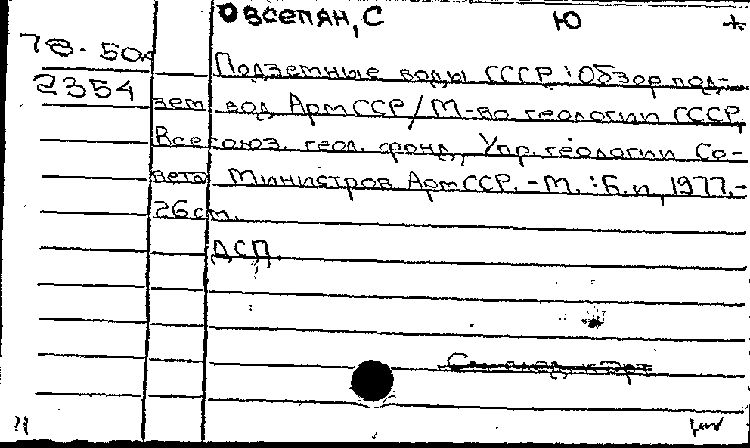 Овсепян, С Ю +
78-50к
2354
Подземные воды СССР : Обзор под-
зем. вод АрмССР / М-во геологии СССР,
Всесоюз. геол. фонд, Упр. геологии Со-
вета Министров АрмССР. - М. : Б.и, 1977. -
26 см.
ДСП.